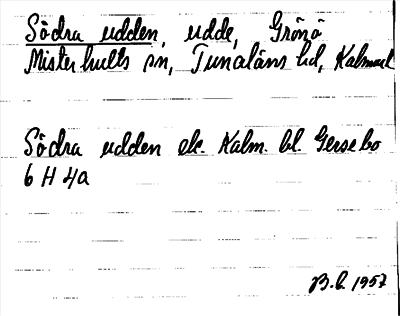 Södra udden, udde, Grönö
Misterhults sn, Tunaläns hd, Kalmar l
Södra udden ek. Kalm. bl. Gersebo
6 H 4a
B.E. 1957